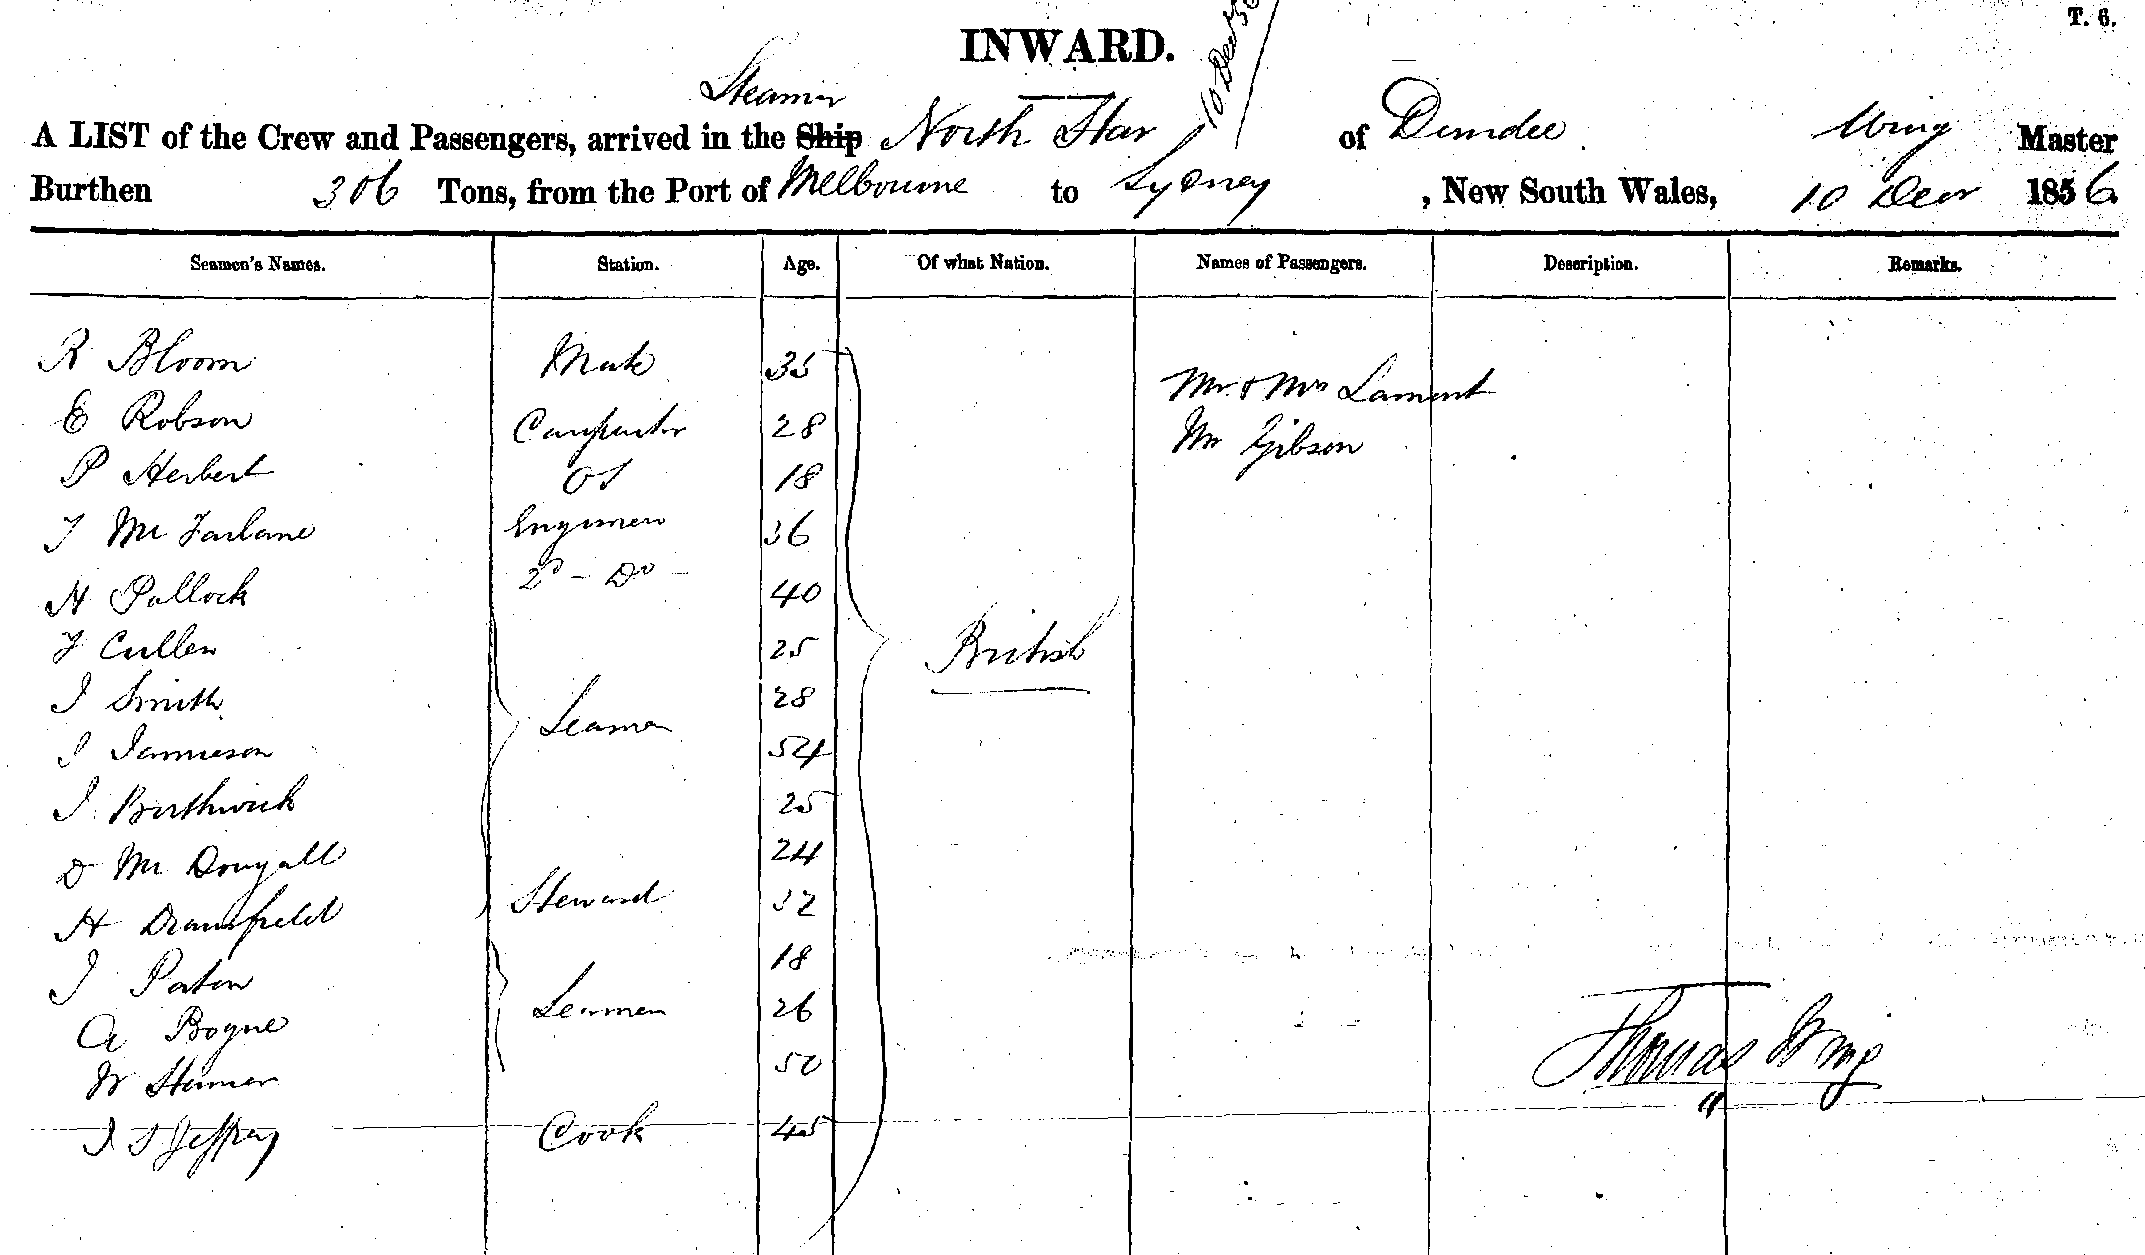 T. 6.
INWARD.
10 Decr 56
Steamer
A LIST of the Crew and Passengers, arrived in the Ship North Star of Dundee Wing Master
Burthen 306 Tons, from the Port of Melbourne to Sydney , New South Wales, 10 Decr 1856
Seamen's Names. Station. Age. Of what Nation. Names of Passengers. Description. Remarks.
R Bloom Mate 35 Mr & Mrs Lament
E Robson Carpenter 28 Mr Gibson
P Herbert OS 18
J Mc Farlane Engineer 36
H Pollock 2D - Do - 40
F Cullen 25 British
J Smith 28
Seamen
J Jamieson 54
J Borthwick 25
D Mc Dougall 24
H Dransfield Steward 32
J Paton 18
A Boyne Seamen 26
W 50
J S Jeffrey Cook 45
Thomas Wing